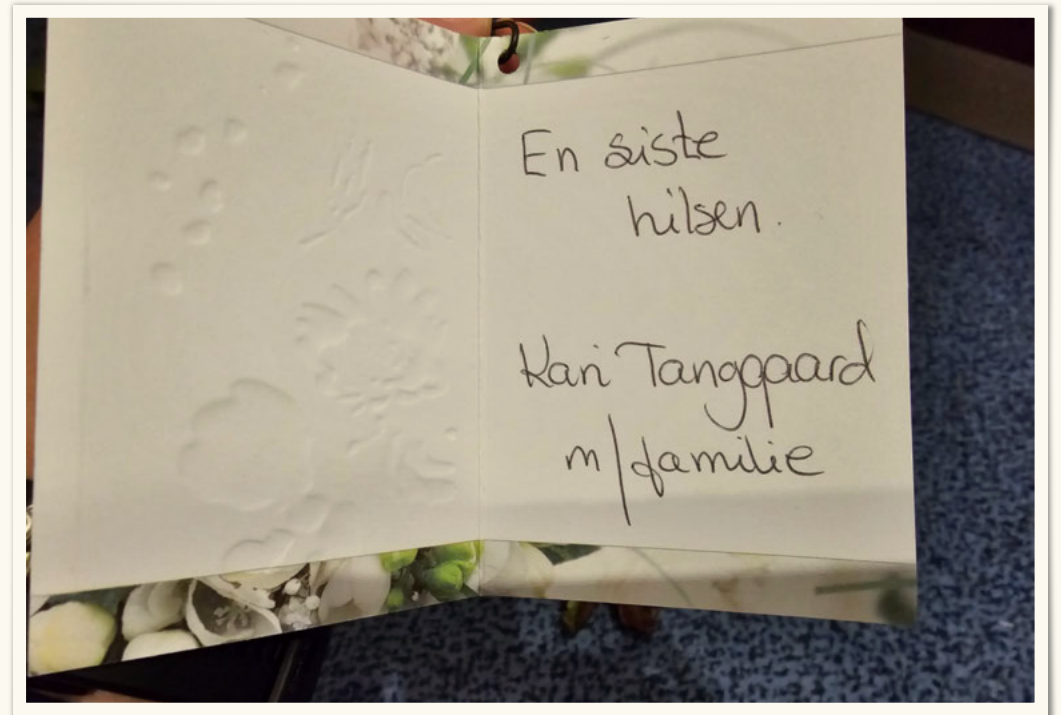 En siste
hilsen.
Kari Tanggaard
m/familie